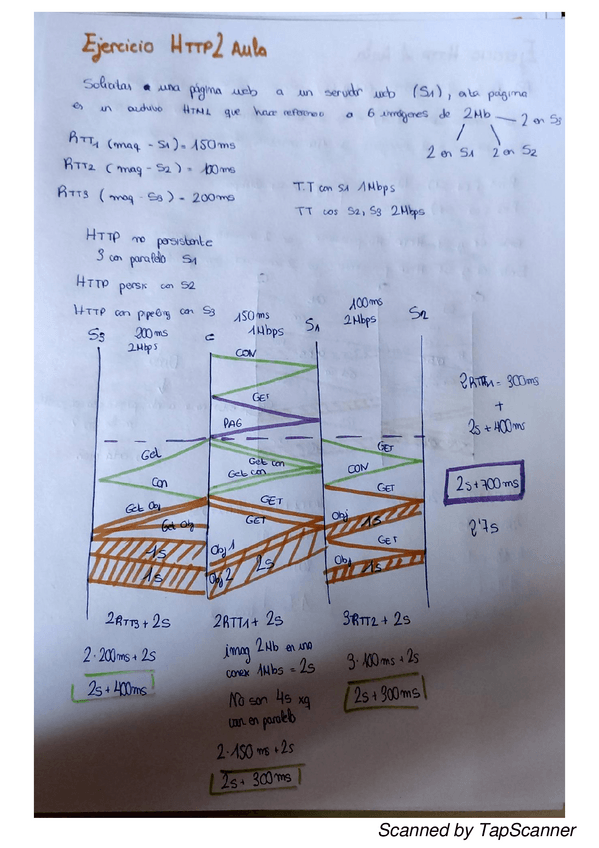 Ejercicio HTTP2 Aula
Solicitas a una página web a un servidor web (S1), esta página
es un archivo HTML que hace referencia a 6 imágenes de 2Mb — 2 en S3
2 en S1 2 en S2
RTT1 (maq - S1) = 150ms
RTT2 (maq - S2) = 100ms
RTT3 (maq - S3) = 200ms
T.T con S1 1Mbps
TT con S2, S3 2Mbps
HTTP no persistente
3 con paralelo S1
HTTP persis con S2
HTTP con pipeling con S3
S3 200ms C 150ms S1 100ms S2
2Mbps 1Mbps 2Mbps
CON
GET
PAG
Get
Con
Get Obj
Get Obj
1s
1s
Get con
Get con
GET
GET
Obj 1
Obj 2
2s
GET
CON
GET
Obj
1s
GET
Obj
1s
2RTT1 = 300ms
+
2s + 400ms
2s + 700ms
2'7s
2RTT3 + 2s
2·200ms + 2s
2s + 400ms
2RTT1 + 2s
imag 2Mb en una
conex 1Mbs = 2s
No son 4s xq
van en paralelo
2·150 ms + 2s
2s + 300ms
3RTT2 + 2s
3·100ms + 2s
2s + 300ms
Scanned by TapScanner